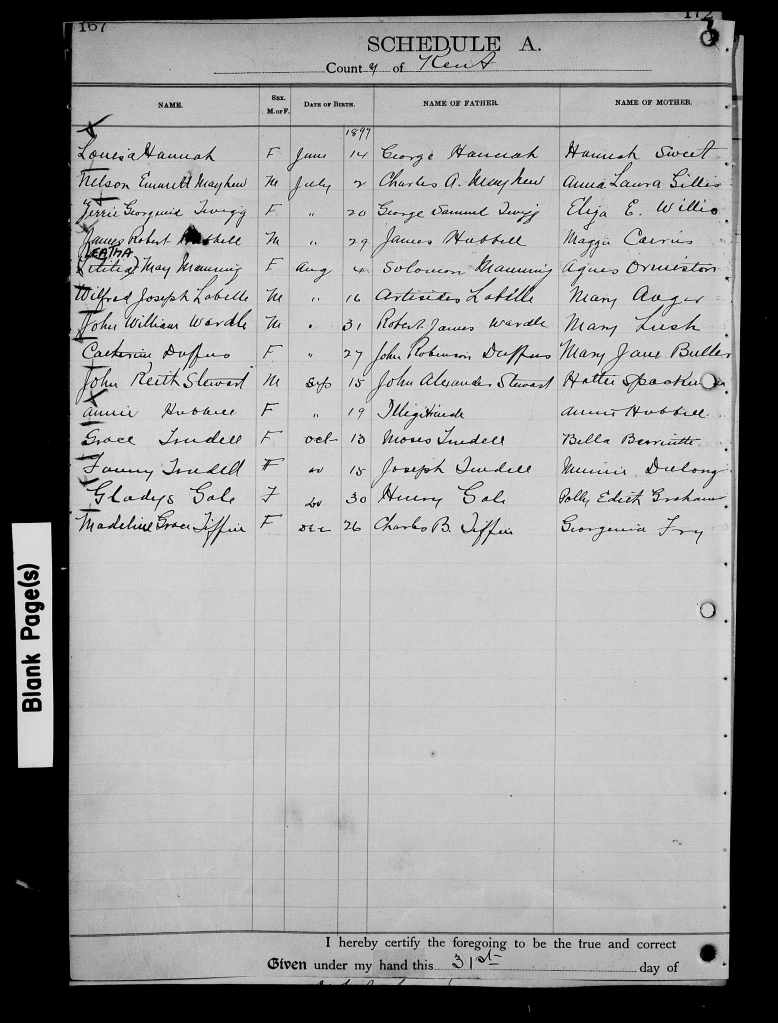 167
172
SCHEDULE A.
County of Kent
NAME. SEX. M. or F. DATE OF BIRTH. NAME OF FATHER. NAME OF MOTHER.
1897
Louisa Hannah F June 14 George Hannah Hannah Sweet
Nelson Emmett Mayhew M July 2 Charles A. Mayhew Anna Laura Gillis
Georgenia Twigg F " 20 George Samuel Twigg Eliza E. Willis
James Robert Hubbell M " 29 James Hubbell Maggie Cairns
LEATHA
(Letitia) May Manning F Aug 4 Solomon Manning Agnes Ormiston
Wilfred Joseph Labelle M " 16 Labelle Mary Auger
John William Wardle M " 31 Robert James Wardle Mary Lush
Catherine Duffus F " 27 John Robinson Duffus Mary Jane Butler
John Keith Stewart M Sep 15 John Alexander Stewart Hattie
Annie Hubbell F " 19 Illigitimate Annie Hubbell
Grace Trudell F Oct 13 Moses Trudell Bella
Fanny Trudell F do 15 Joseph Trudell Minnie Dulong
Gladys Gale F do 30 Henry Gale Polly Edith Graham
Madeline Grace Tiffin F Dec 26 Charles B. Tiffin Georgenia Fry
Blank Page(s)
I hereby certify the foregoing to be the true and correct
Given under my hand this 31st day of